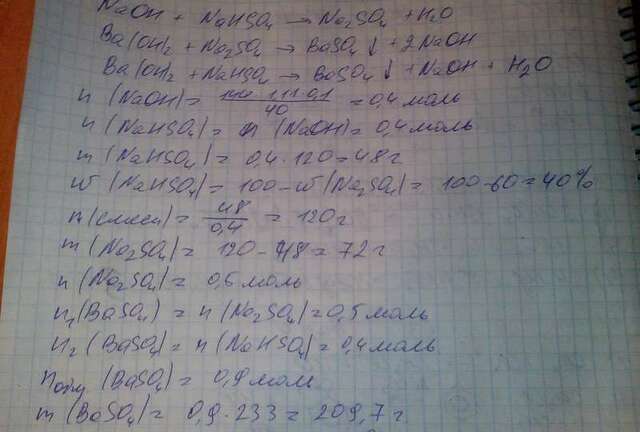 NaOH + NaHSO₄ → Na₂SO₄ + H₂O
Ba(OH)₂ + Na₂SO₄ → BaSO₄↓ + 2NaOH
Ba(OH)₂ + NaHSO₄ → BaSO₄↓ + NaOH + H₂O
n(NaOH) = 40 = 0,4 моль
n(NaHSO₄) = n(NaOH) = 0,4 моль
m(NaHSO₄) = 0,4 · 120 = 48г
ω(NaHSO₄) = 100 - ω(Na₂SO₄) = 100 - 60 = 40%
m(смеси) = 48/0,4 = 120г
m(Na₂SO₄) = 120 - 48 = 72г
n(Na₂SO₄) = 0,5 моль
n₁(BaSO₄) = n(Na₂SO₄) = 0,5 моль
n₂(BaSO₄) = n(NaHSO₄) = 0,4 моль
nобщ(BaSO₄) = 0,9 моль
m(BaSO₄) = 0,9 · 233 = 209,7г